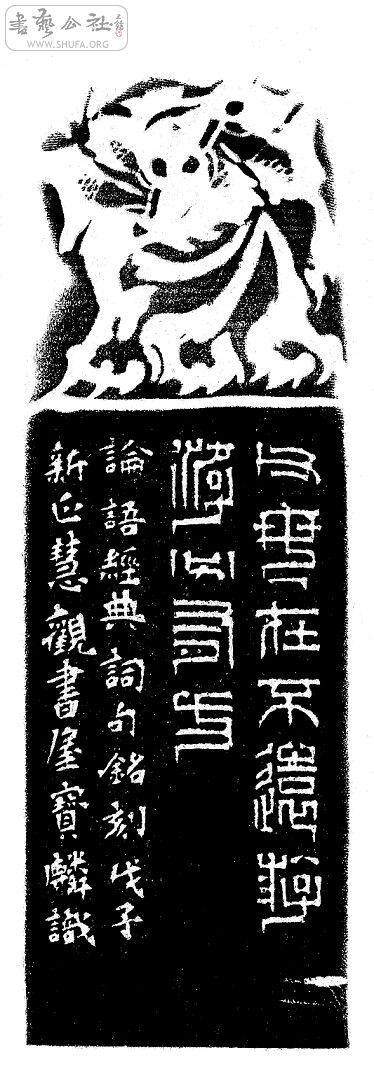 書藝公社
WWW.SHUFA.ORG
父母在不遠斿
游必有方
論語經典詞句銘刻戊子
新正慧觀書屋寶麟識